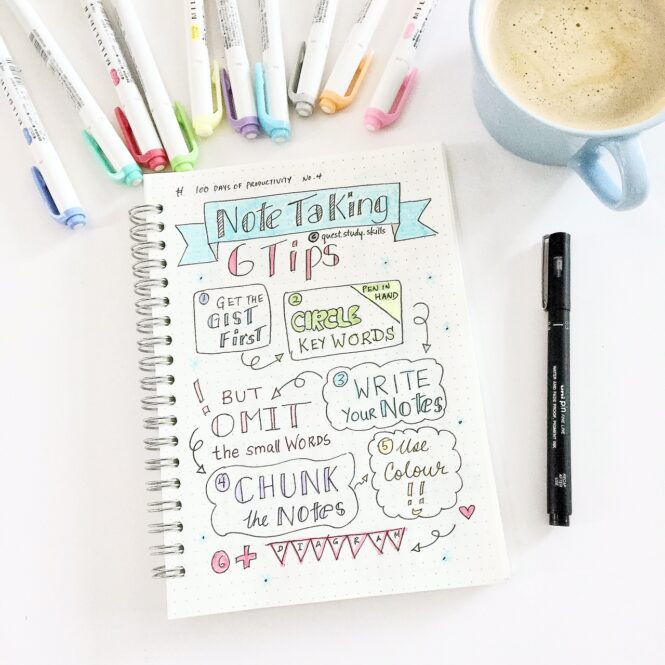 # 100 DAYS OF PRODUCTIVITY No. 4
Note Taking
@ quest.study.skills
6 Tips
1 GET THE
GIST
First
2 PEN IN
HAND
CIRCLE
KEY WORDS
3 WRITE
YOUR NOTES
! BUT
OMIT
the small WORDS
4 CHUNK
the NOTES
5 Use
Colour
!!
6 + DIAGRAM
uni pin FINE LINE
WATER AND FADE PROOF, PIGMENT INK
0.3